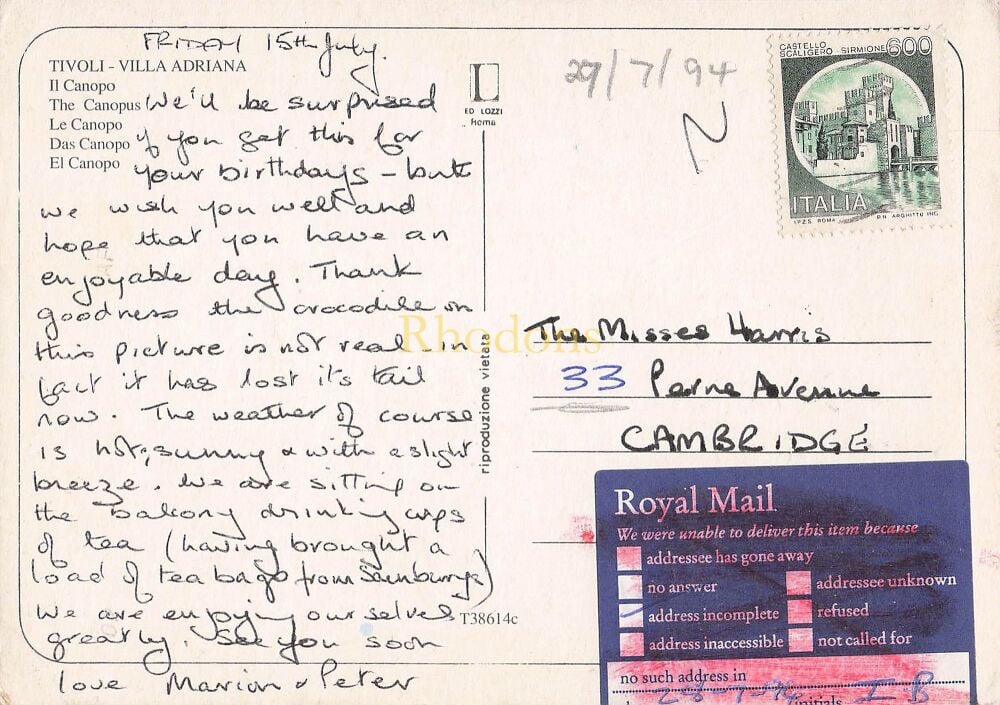 FRIDAY 15th July.
TIVOLI - VILLA ADRIANA
Il Canopo
The Canopus
Le Canopo
Das Canopo
El Canopo
We'll be surprised
if you get this for
your birthdays - but
we wish you well and
hope that you have an
enjoyable day. Thank
goodness the crocodile in
this picture is not real - in
fact it has lost its tail
now. The weather of course
is hot, sunny & with a slight
breeze. We are sitting on
the balcony drinking cups
of tea (having brought a
load of tea bags from Sainburys)
We are enjoying ourselves
greatly. See you soon
love Marion & Peter
T38614c
L
ED LOZZI
Roma
riproduzione vietata
29/7/94
CASTELLO
SCALIGERO - SIRMIONE 600
ITALIA
I.P.Z.S. ROMA P.N. ARGHITTU INC.
Rhodons
The Misses Harris
33 Perne Avenue
CAMBRIDGE
Royal Mail
We were unable to deliver this item because
addressee has gone away
no answer
addressee unknown
address incomplete
refused
address inaccessible
not called for
no such address in
initials IB